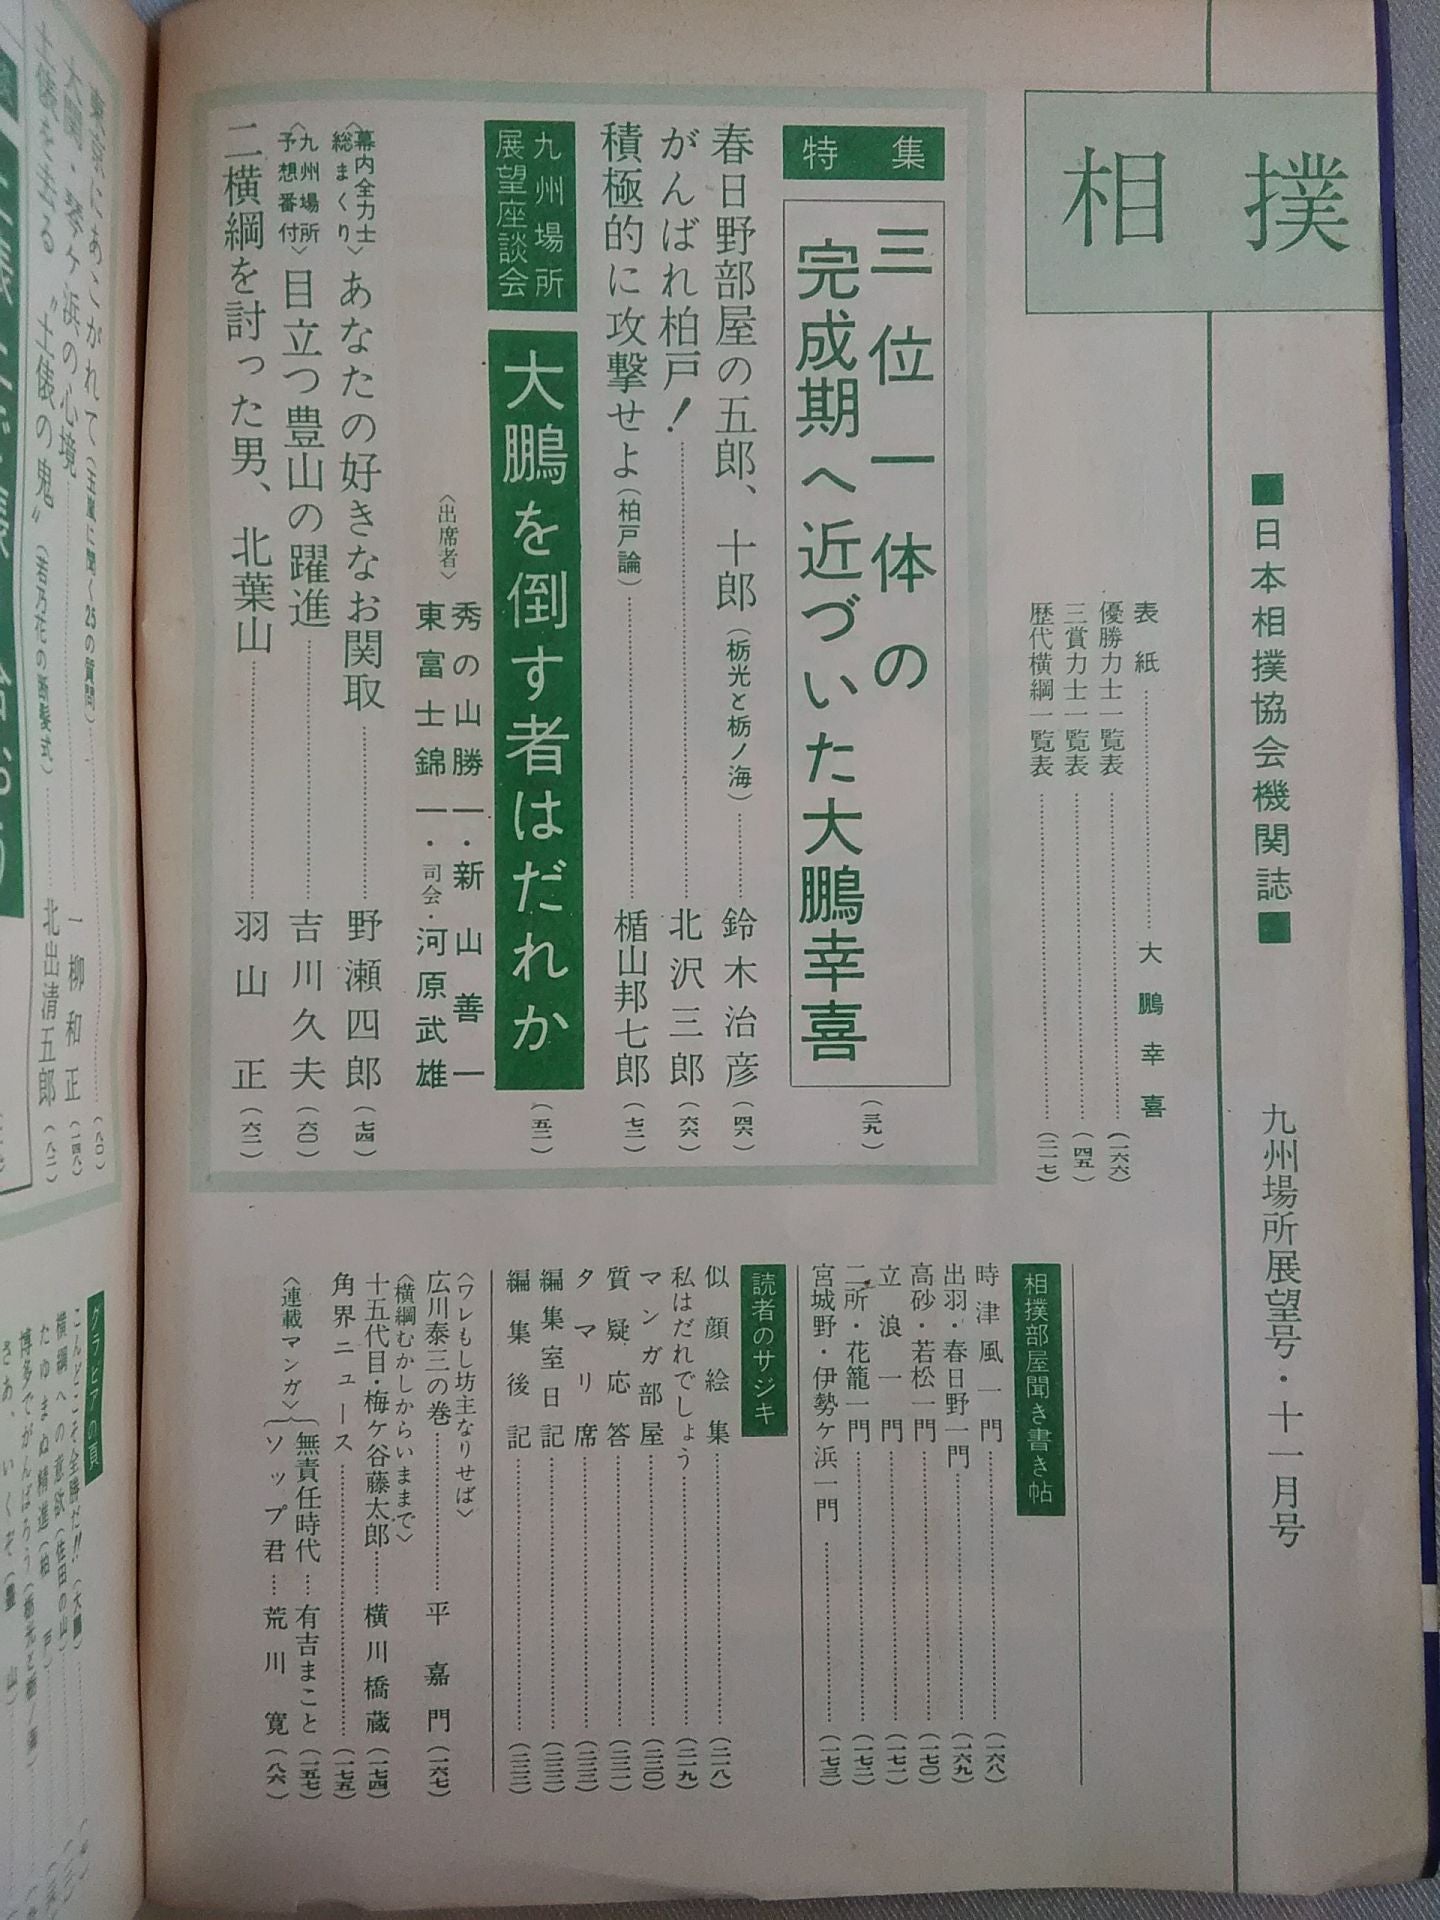 相撲
■日本相撲協会機関誌■
九州場所展望号・十一月号
表紙……大鵬幸喜
優勝力士一覧表……(一六六)
三賞力士一覧表……(四五)
歴代横綱一覧表……(二一七)
特集
三位一体の
完成期へ近づいた大鵬幸喜
(三九)
春日野部屋の五郎、十郎(栃光と栃ノ海)……鈴木治彦(四六)
がんばれ柏戸!……北沢三郎(六六)
積極的に攻撃せよ(柏戸論)……楯山邦七郎(七二)
九州場所
展望座談会
大鵬を倒す者はだれか
(五二)
〈出席者〉
秀の山勝一・新山善一
東富士錦一・司会・河原武雄
〈幕内全力士
総まくり〉あなたの好きなお関取……野瀬四郎(七四)
〈九州場所
予想番付〉目立つ豊山の躍進……吉川久夫(六〇)
二横綱を討った男、北葉山……羽山正(六二)
東京にあこがれて(玉嵐に聞く25の質問)……(八〇)
大関・琴ヶ浜の心境……一柳和正
土俵を去る〝土俵の鬼〟(若乃花の断髪式)……北出清五郎(八二)
相撲部屋聞き書き帖
時津風一門……(一六八)
出羽・春日野一門……(一六九)
高砂・若松一門……(一七〇)
立浪一門……(一七一)
二所・花籠一門……(一七二)
宮城野・伊勢ヶ浜一門……(一七三)
読者のサジキ
似顔絵集……(二一八)
私はだれでしょう……(二一九)
マンガ部屋……(二二〇)
質疑応答……(二二一)
タマリ席……(二二三)
編集室日記……(二二二)
編集後記……(二二二)
〈ワレもし坊主なりせば〉
広川泰三の巻……平嘉門(一六七)
〈横綱むかしからいままで〉
十五代目・梅ケ谷藤太郎……横川橋蔵(一七四)
角界ニュース……(一七五)
〈連載マンガ〉{無責任時代…有吉まこと(一五七)
ソップ君…荒川寛(八六)
グラビアの頁
こんどこそ全勝だ!!(大鵬)
横綱への意欲(佐田の山)
たゆまぬ精進(柏戸)
博多でがんばろう(栃光と栃ノ海)
さあ、いくぞ(豊山)